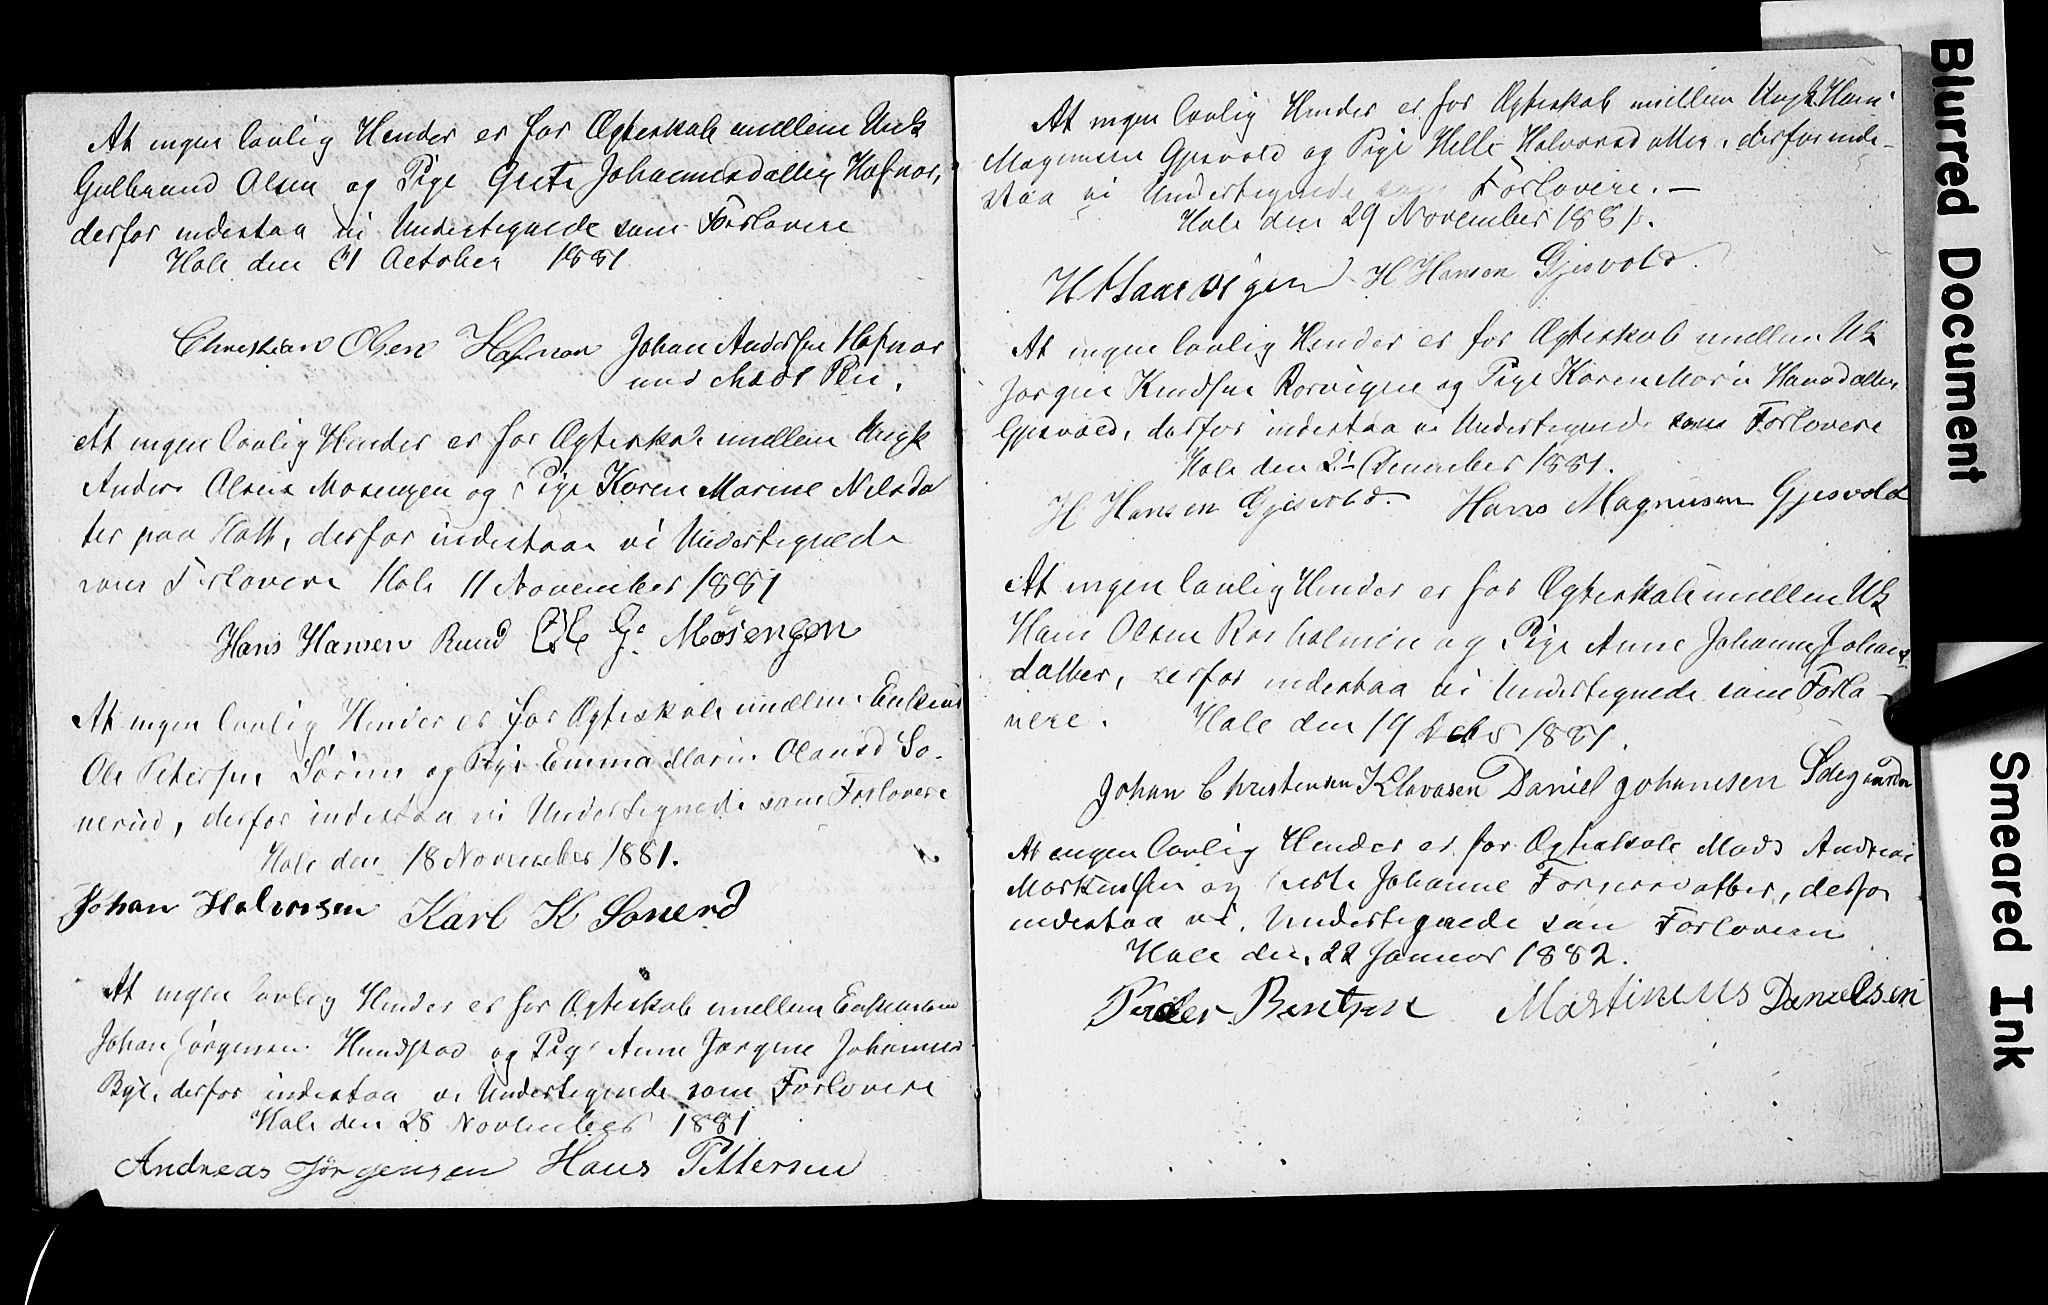 At ingen lovlig Hinder er for Ægteskab mellem Unk
Gulbrand Olsen og Pige Grete Johannesdatter Hafnor,
derfor indestaa vi Undertegnede som Forlovere
Hole den 31 October 1881
Christian Olsen Hafnor Johan Andersen Hafnor
med Pen.
At ingen lovlig Hinder er for Ægteskab mellem Ungk
Anders Olsen Mosengen og Pige Karen Marine Nilsdat
ter paa, derfor indestaar vi Undertegnede
som Forlovere Hole 11 November 1881
Hans Hansen Rund G. Mosengen
At ingen lovlig Hinder er for Ægteskab mellem Enkem
Ole Petersen Sørum og Pige Emma Marie Olausd So-
nerud, derfor indestaa vi Undertegnede som Forlovere
Hole den 18 November 1881.
Johan Halvorsen Karl K Sonerd
At ingen lovlig Hinder er for Ægteskab mellem Enkemand
Johan Jørgensen Hundstad og Pige Anne Jørgine Johannesd
Bye, derfor indestaa vi Undertegnede som Forlovere
Hole den 28 November 1881
Andreas Jørgensen Hans Pettersen
At ingen lovlig Hinder er for Ægteskab mellem Ungk Hans
Magnusen Gjesvold og Pige Helle Halvorsdatter, derfor inde-
staa vi Undertegnede som Forlovere. —
Hole den 29 November 1881.
H Haarvigen H Hansen Gjesvold.
At ingen lovlig Hinder er for Ægteskab mellem Uk
Jørgen Knudsen Rørvigen og Pige Karen Marie Hansdatter
Gjesvold, derfor indestaa vi Undertegnede som Forlovere
Hole den 21 December 1881.
H Hansen Gjesvold. Hans Magnusen Gjesvold
At ingen lovlig Hinder er for Ægteskab mellem Uk
Hans Olsen Rosholmen og Pige Anne Johanne Johans-
datter, derfor indestaa vi Undertegnede som Forlo-
vere. Hole den 19 Debr 1881.
Johan Christensen Klavasen Daniel Johansen Ødegaarden
At ingen lovlig Hinder er for Ægteskab Mads Andreas
Martinsen og Johanne datter, derfor
indestaa vi Undertegnede som Forlovere
Hole den 22 Januar 1882.
Peder Bentsen Martinius Danielsen
Blurred Document
Smeared Ink